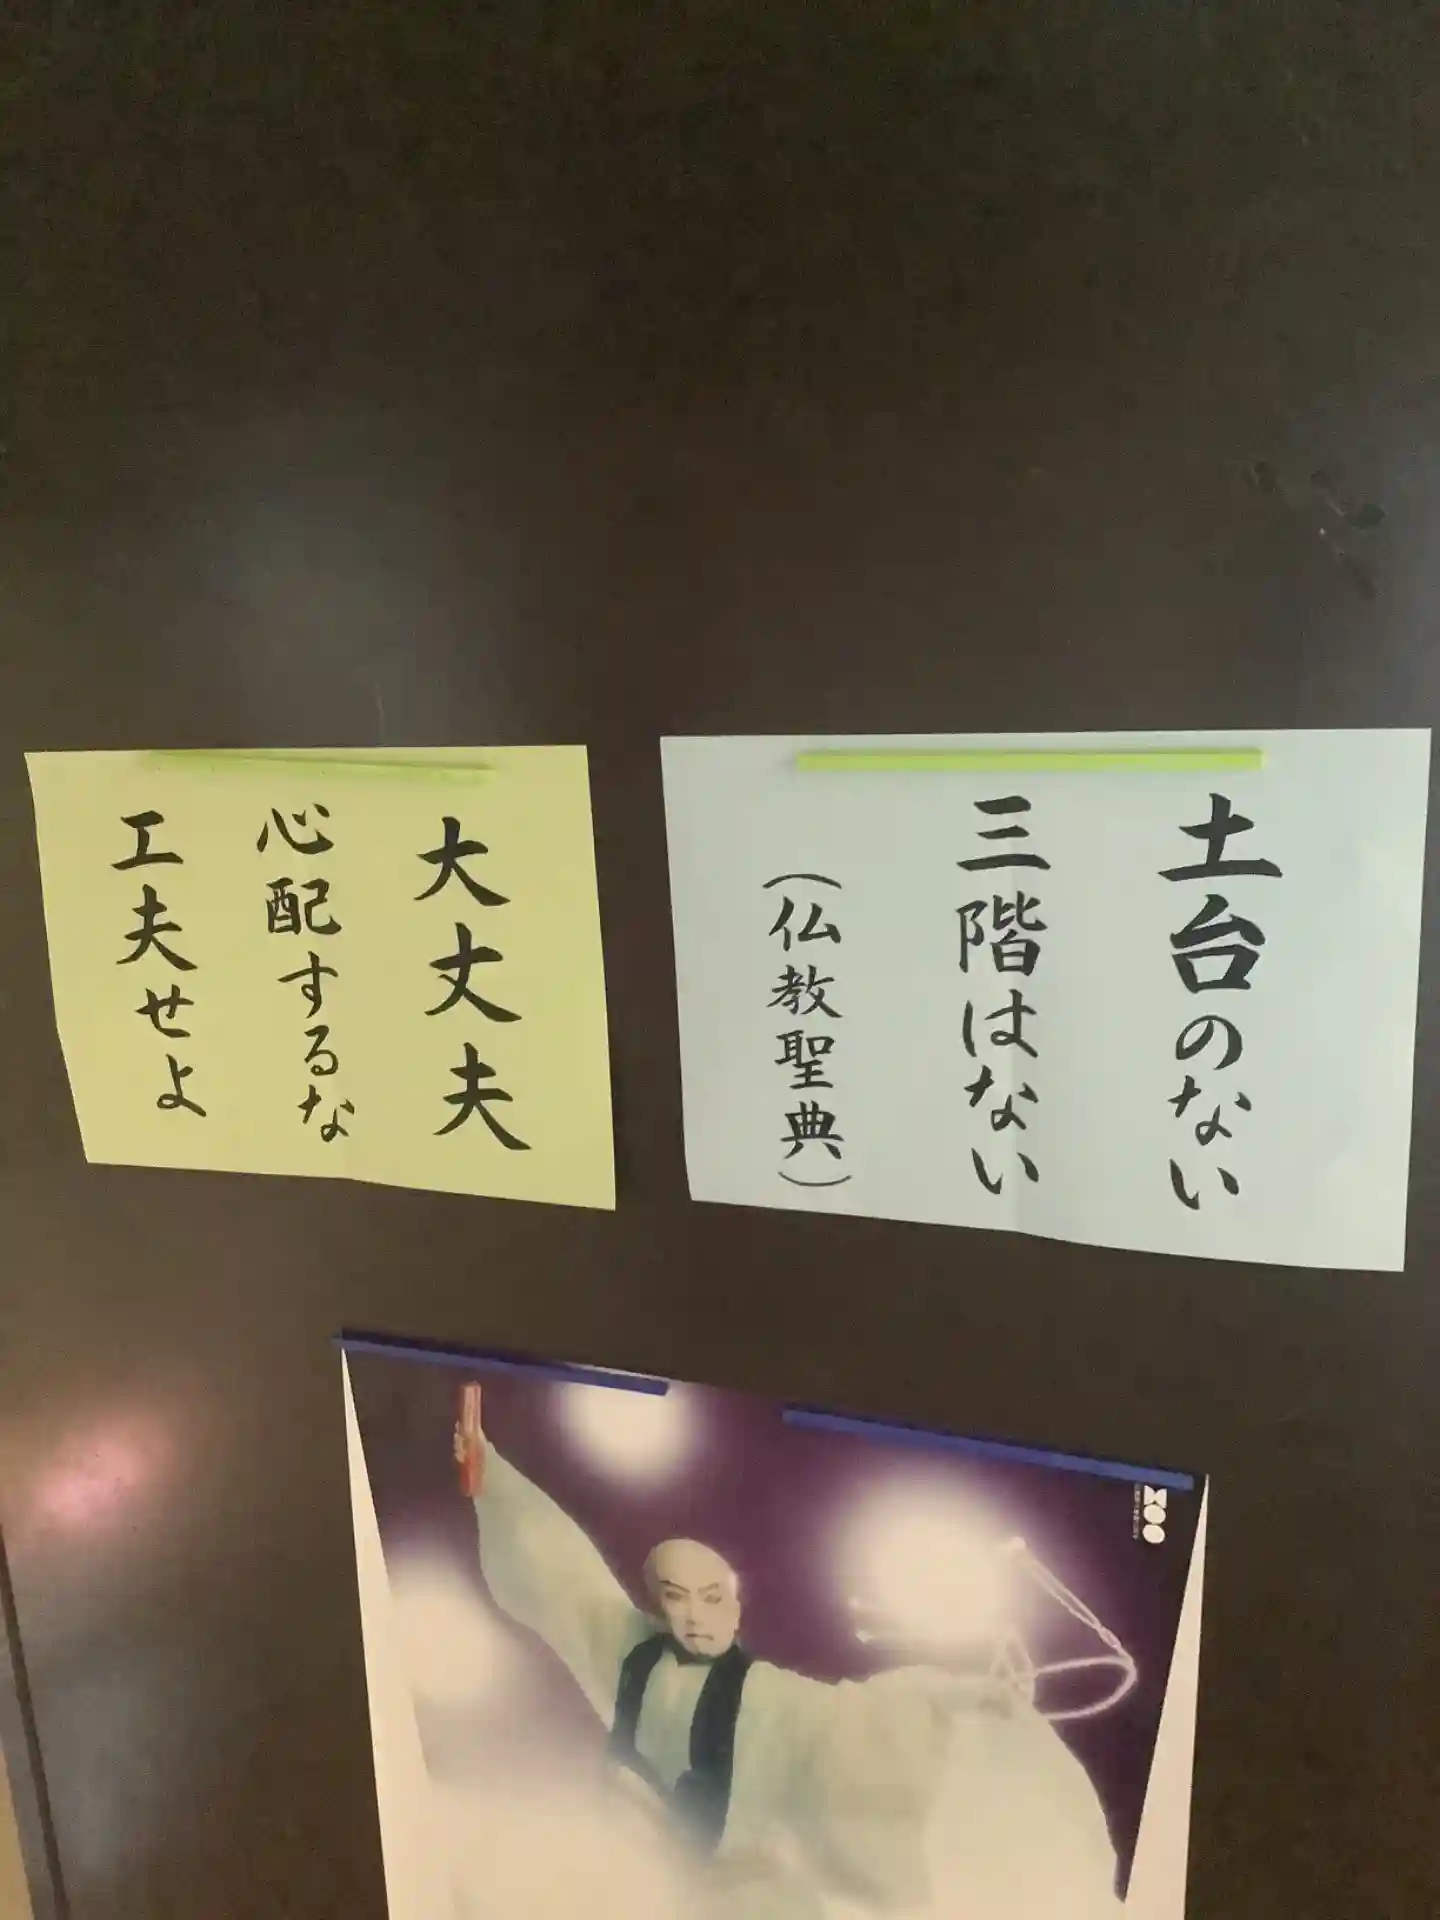 土台のない
三階はない
(仏教聖典)
大丈夫
心配するな
工夫せよ